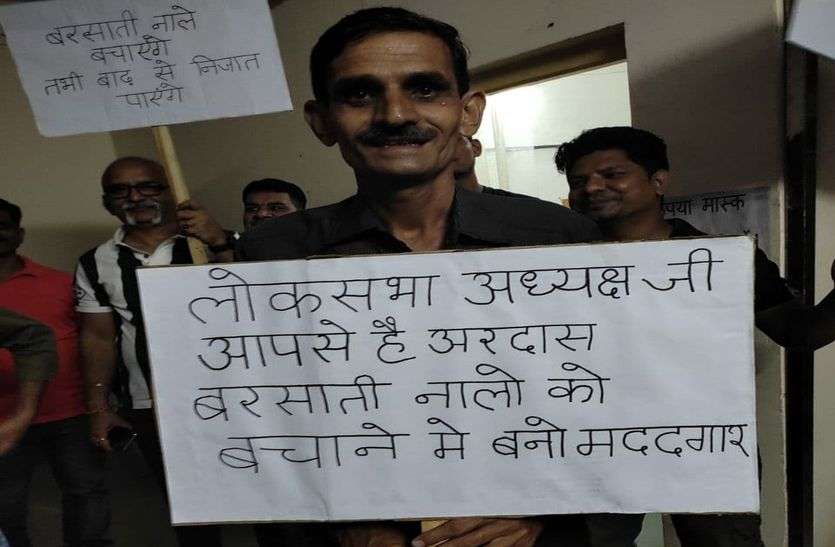 बरसाती नाले
बचाएंगे
तभी बाढ़ से निजात
पाएंगे
लोकसभा अध्यक्ष जी
आपसे है अरदास
बरसाती नालो को
बचाने मे बनो मददगार
मास्क